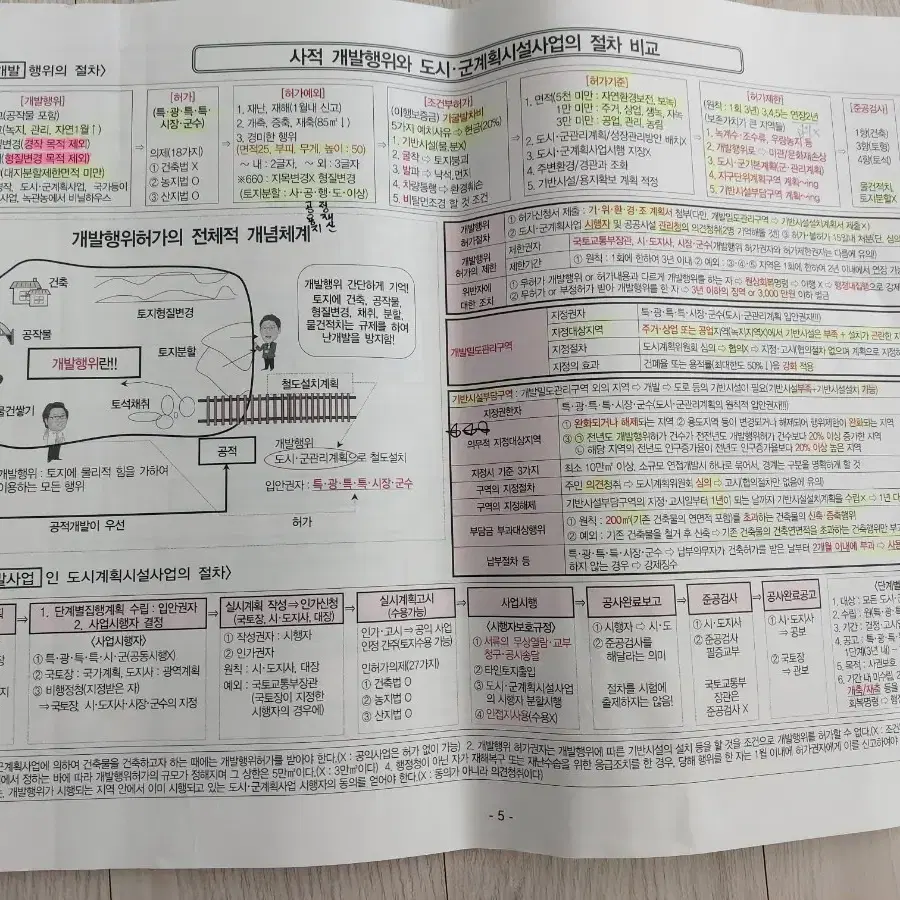 사적 개발행위와 도시·군계획시설사업의 절차 비교
개발 행위의 절차>
[개발행위]
(공작물 포함)
(녹지, 관리, 자연1월↓)
변경(경작 목적 제외)
(형질변경 목적 제외)
(대지분할제한면적 미만)
경작, 도시·군계획사업, 국가등이
사업, 녹관농에서 비닐하우스
[허가]
(특·광·특·특·
시장·군수)
의제(18가지)
① 건축법X
② 농지법O
③ 산지법O
[허가예외]
1. 재난, 재해(1월내 신고)
2. 개축, 증축, 재축(85㎡↓)
3. 경미한 행위
(면적25, 부피, 무게, 높이 : 50)
~ 내 : 2글자, ~ 외 : 3글자
※660 : 지목변경X 형질변경
(토지분할 : 사·공·행·도·이상)
[조건부허가]
(이행보증금) 기굴발차비
5가지 예치사유 ⇨ 현금(20%)
1. 기반시설(물,분X)
2. 굴착 ⇨ 토지붕괴
3. 발파 ⇨ 낙석,먼지
4. 차량통행 ⇨ 환경훼손
5. 비탈면조경 할 것 조건
[허가기준]
1. 면적(5천 미만 : 자연환경보전, 보녹)
1만 미만 : 주거, 상업, 생녹, 자녹
3만 미만 : 공업, 관리, 농림
2. 도시·군관리계획/성장관리방안 배치X
3. 도시·군계획사업시행 지장X
4. 주변환경/경관과 조화
5. 기반시설/용지확보 계획 적정
[허가제한]
(원칙 : 1회 3년) 3,4,5는 연장2년
(보존가치가 큰 지역들)
1. 녹계수·조수류, 우량농지 등
2. 개발행위로 ⇨ 미관/문화재손상
3. 도시·군기본계획(군·관리계획)
4. 지구단위계획구역 계획~ing
5. 기반시설부담구역 계획~ing
[준공검사]
1형(건축)
3형(토형)
4형(토석)
물건적치,
토지분할X
개발행위허가의 전체적 개념체계
건축
토지형질변경
공작물
토지분할
개발행위란!!
물건쌓기
토석채취
철도설치계획
공적
개발행위 간단하게 기억!
토지에 건축, 공작물,
형질변경, 채취, 분할,
물건적치는 규제를 하여
난개발을 방지함!
개발행위
도시·군관리계획으로 철도설치
입안권자 : 특·광·특·특·시장·군수
허가
개발행위 : 토지에 물리적 힘을 가하여
이용하는 모든 행위
공적개발이 우선
개발행위
허가절차
① 허가신청서 제출 : 기·위·환·경·조 계획서 첨부(다만, 개발밀도관리구역 ⇨ 기반시설설치계획서 제출X)
② 도시·군계획사업 시행자 및 공공시설 관리청의 의견청취
개발행위
허가의 제한
제한권자
국토교통부장관, 시·도지사, 시장·군수(개발행위 허가권자와 허가제한권자는 다름에 유의)
제한기간
① 원칙 : 1회에 한하여 3년 이내 ② 예외 : ③·④·⑤ 지역은 1회에 한하여 2년 이내에서 연장
위반자에
대한 조치
① 무허가 개발행위 or 허가내용과 다르게 개발행위를 하는 자 ⇨ 원상회복명령 ⇨ 이행 X ⇨ 행정대집행으로
② 무허가 or 부정허가 받아 개발행위를 한 자 ⇨ 3년 이하의 징역 or 3,000만원 이하 벌금
개발밀도관리구역
지정권자
특·광·특·특·시장·군수(도시·군관리계획 입안권자!!!)
지정대상지역
주거·상업 또는 공업지역(녹지지역X)에서 기반시설은 부족 + 설치가 곤란한
지정절차
도시계획위원회 심의 ⇨ 협의X ⇨ 지정·고시
지정의 효과
건폐율 또는 용적률(최대한도 50%↓)을 강화 적용
기반시설부담구역 : 개발밀도관리구역 외의 지역 ⇨ 개발 ⇨ 도로 등의 기반시설이 필요(기반시설부족+기반시설설치 가능)
지정권한자
특·광·특·특·시장·군수(도시·군관리계획의 원칙적 입안권자!!!)
의무적 지정대상지역
① 완화되거나 해제되는 지역 ② 용도지역 등이 변경되거나 해제되어 행위제한이 완화되는 지역
③ ㉠ 전년도 개발행위허가 건수가 전전년도 개발행위허가 건수보다 20% 이상 증가한 지역
㉡ 해당 지역의 전년도 인구증가율이 전년도 인구증가율보다 20% 이상 높은 지역
지정시 기준 3가지
최소 10만㎡ 이상, 소규모 연접개발시 하나로 묶어서, 경계는 구분을 명확하게 할 것
구역의 지정절차
주민 의견청취 ⇨ 도시계획위원회 심의 ⇨ 고시(협의절차만 없음에 유의)
구역의 지정해제
기반시설부담구역의 지정·고시일부터 1년이 되는 날까지 기반시설설치계획을 수립X ⇨ 1년
부담금 부과대상행위
① 원칙 : 200㎡(기존 건축물의 연면적 포함)를 초과하는 건축물의 신축·증축행위
② 예외 : 기존 건축물을 철거 후 신축 ⇨ 기존 건축물의 건축연면적을 초과하는 건축행위만
납부절차 등
특·광·특·특·시장·군수 ⇨ 납부의무자가 건축허가를 받은 날부터 2개월 이내에 부과 ⇨
하지 않는 경우 ⇨ 강제징수
발사업 인 도시계획시설사업의 절차>
1. 단계별집행계획 수립 : 입안권자
2. 사업시행자 결정
<사업시행자>
① 특·광·특·특·시·군(공동시행X)
② 국토장 : 국가계획, 도지사 : 광역계획
③ 비행정청(지정받은 자)
⇨ 국토장, 시·도지사·시장·군수의 지정
실시계획 작성⇨인가신청
(국토장, 시·도지사, 대장)
① 작성권자 : 시행자
② 인가권자
원칙 : 시·도지사, 대장
예외 : 국토교통부장관
(국토장이 지정한
시행자의 경우에)
실시계획고시
(수용가능)
인가·고시⇨공익 사업
인정 간주(토지수용 가능)
인허가의제(27가지)
① 건축법 O
② 농지법 O
③ 산지법 O
사업시행
<시행자보호규정>
① 서류의 무상열람·교부
청구·공시송달
② 타인토지출입
③ 도시·군계획시설사업
의 시행자 분할시행
④ 인접지사용(수용X)
공사완료보고
① 시행자 ⇨ 시·도
② 준공검사를
해달라는 의미
절차를 시험에
출제하지는 않음!
준공검사
① 시·도지사
② 준공검사
필증교부
국토교통부
장관은
준공검사 X
공사완료공고
① 시·도지사
⇨ 공보
② 국토장
⇨ 관보
1. 대상 : 모든 도시
3. 기간 : 결정·고시
5. 목적 : 사권보호
6. 기간 내 미수립,
개축/재축 등을
군계획사업에 의하여 건축물을 건축하고자 하는 때에는 개발행위허가를 받아야 한다.(X : 공익사업은 허가 없이 가능) 2. 개발행위 허가권자는 개발행위에 따른 기반시설의 설치 등을 할 것을 조건으로 개발행위를 허가할 수 없다.
에서 정하는 바에 따라 개발행위허가의 규모가 정해지며 그 상한은 5만㎡이다.(X : 3만㎡이다) 4. 행정청이 아닌 자가 재해복구 또는 재난수습을 위한 응급조치를 한 경우, 당해 행위를 한 자는 1월 이내에 허가권자에게 이를 신고하여야
개발행위가 시행되는 지역 안에서 이미 시행되고 있는 도시·군계획사업 시행자의 동의를 얻어야 한다.(X : 동의가 아니라 의견청취이다)
- 5 -